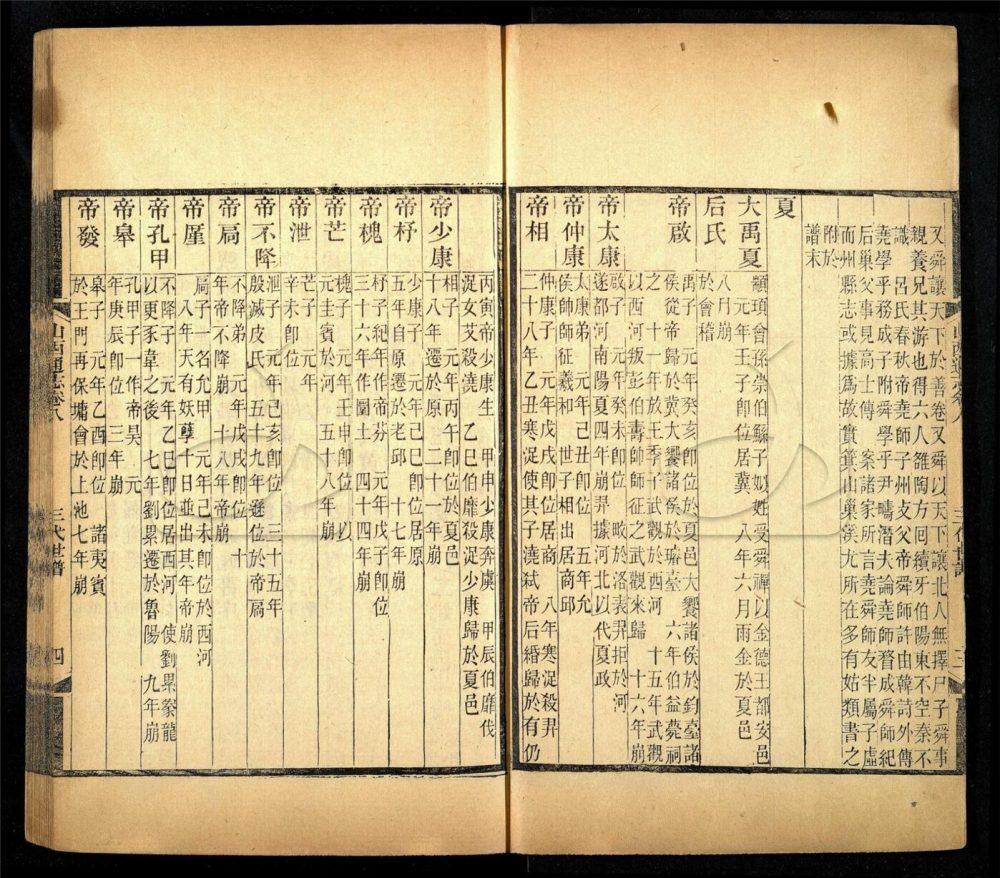 又舜讓天下於善卷又舜以天下讓北人無擇尸子舜事
親養兄其游也得六人雒陶方回續牙伯陽東不空秦不
識 呂氏春秋帝堯師子州支父帝舜師許由韓詩外傳
堯學乎務成子附舜學乎尹疇潛夫論堯師務成舜師紀
后巢父事見高士傳 案諸家所言堯舜師友半屬子虛
而州縣志或據爲故實箕山巢溪尤所在多有姑類書之
附於
譜末
夏
大禹夏 顓頊曾孫崇伯鯀子姒姓受舜禪以金德王都安邑
元年壬子即位居冀 八年六月雨金於夏邑
后氏 八月崩
於會稽
帝啟 禹子 元年癸亥即位於夏邑大饗諸侯於鈞臺諸
侯從帝歸於冀大饗諸侯於璿臺 六年伯益薨祠
之 十一年放王季子武觀於西河 十五年武觀
以西河叛彭伯壽帥師征之武觀來歸 十六年崩
帝太康 啟子 元年癸未即位 畋於洛表羿拒於河
遂都河南陽夏四年崩羿據河北以代夏政
帝仲康 太康弟 元年己丑即位 五年允
侯帥師征羲和 世子相出居商邱
帝相 仲康子 元年戊戌即位居商 八年寒浞殺羿
二十八年乙丑寒浞使其子澆弑帝后緡歸於有仍
丙寅帝少康生 甲申少康奔虞 甲辰伯靡伐
浞女艾殺澆 乙巳伯靡殺浞少康歸於夏邑
帝少康 相子 元年丙午即位於夏邑
十八年遷於原 二十一年崩
帝杼 少康子 元年己巳即位居原
五年自原遷於老邱 十七年崩
帝槐 杼子紀年作帝芬 元年戊子即位
三十六年作圜土 四十四年崩
帝芒 槐子 元年壬申即位 以
元圭賓於河 五十八年崩
帝泄 芒子 元年
辛未即位
帝不降 泄子 元年己亥即位 三十五年
殷滅皮氏 五十九年遜位於帝扃
帝扃 不降弟 元年戊戌即位 十
年帝不降崩 十八年帝崩
帝厪 扃子一名允甲 元年己未即位於西河
八年天有妖孽十日並出其年帝崩
帝孔甲 不降子 元年乙巳即位居西河 使劉累豢龍
以更豕韋之後 七年劉累遷於魯陽 九年崩
帝皋 孔甲子一作帝昊 元
年庚辰即位 三年崩
帝發 皋子 元年乙酉即位 諸夷賓
於王門再保墉會於上池七年崩
山西通志卷八 三代世譜 四